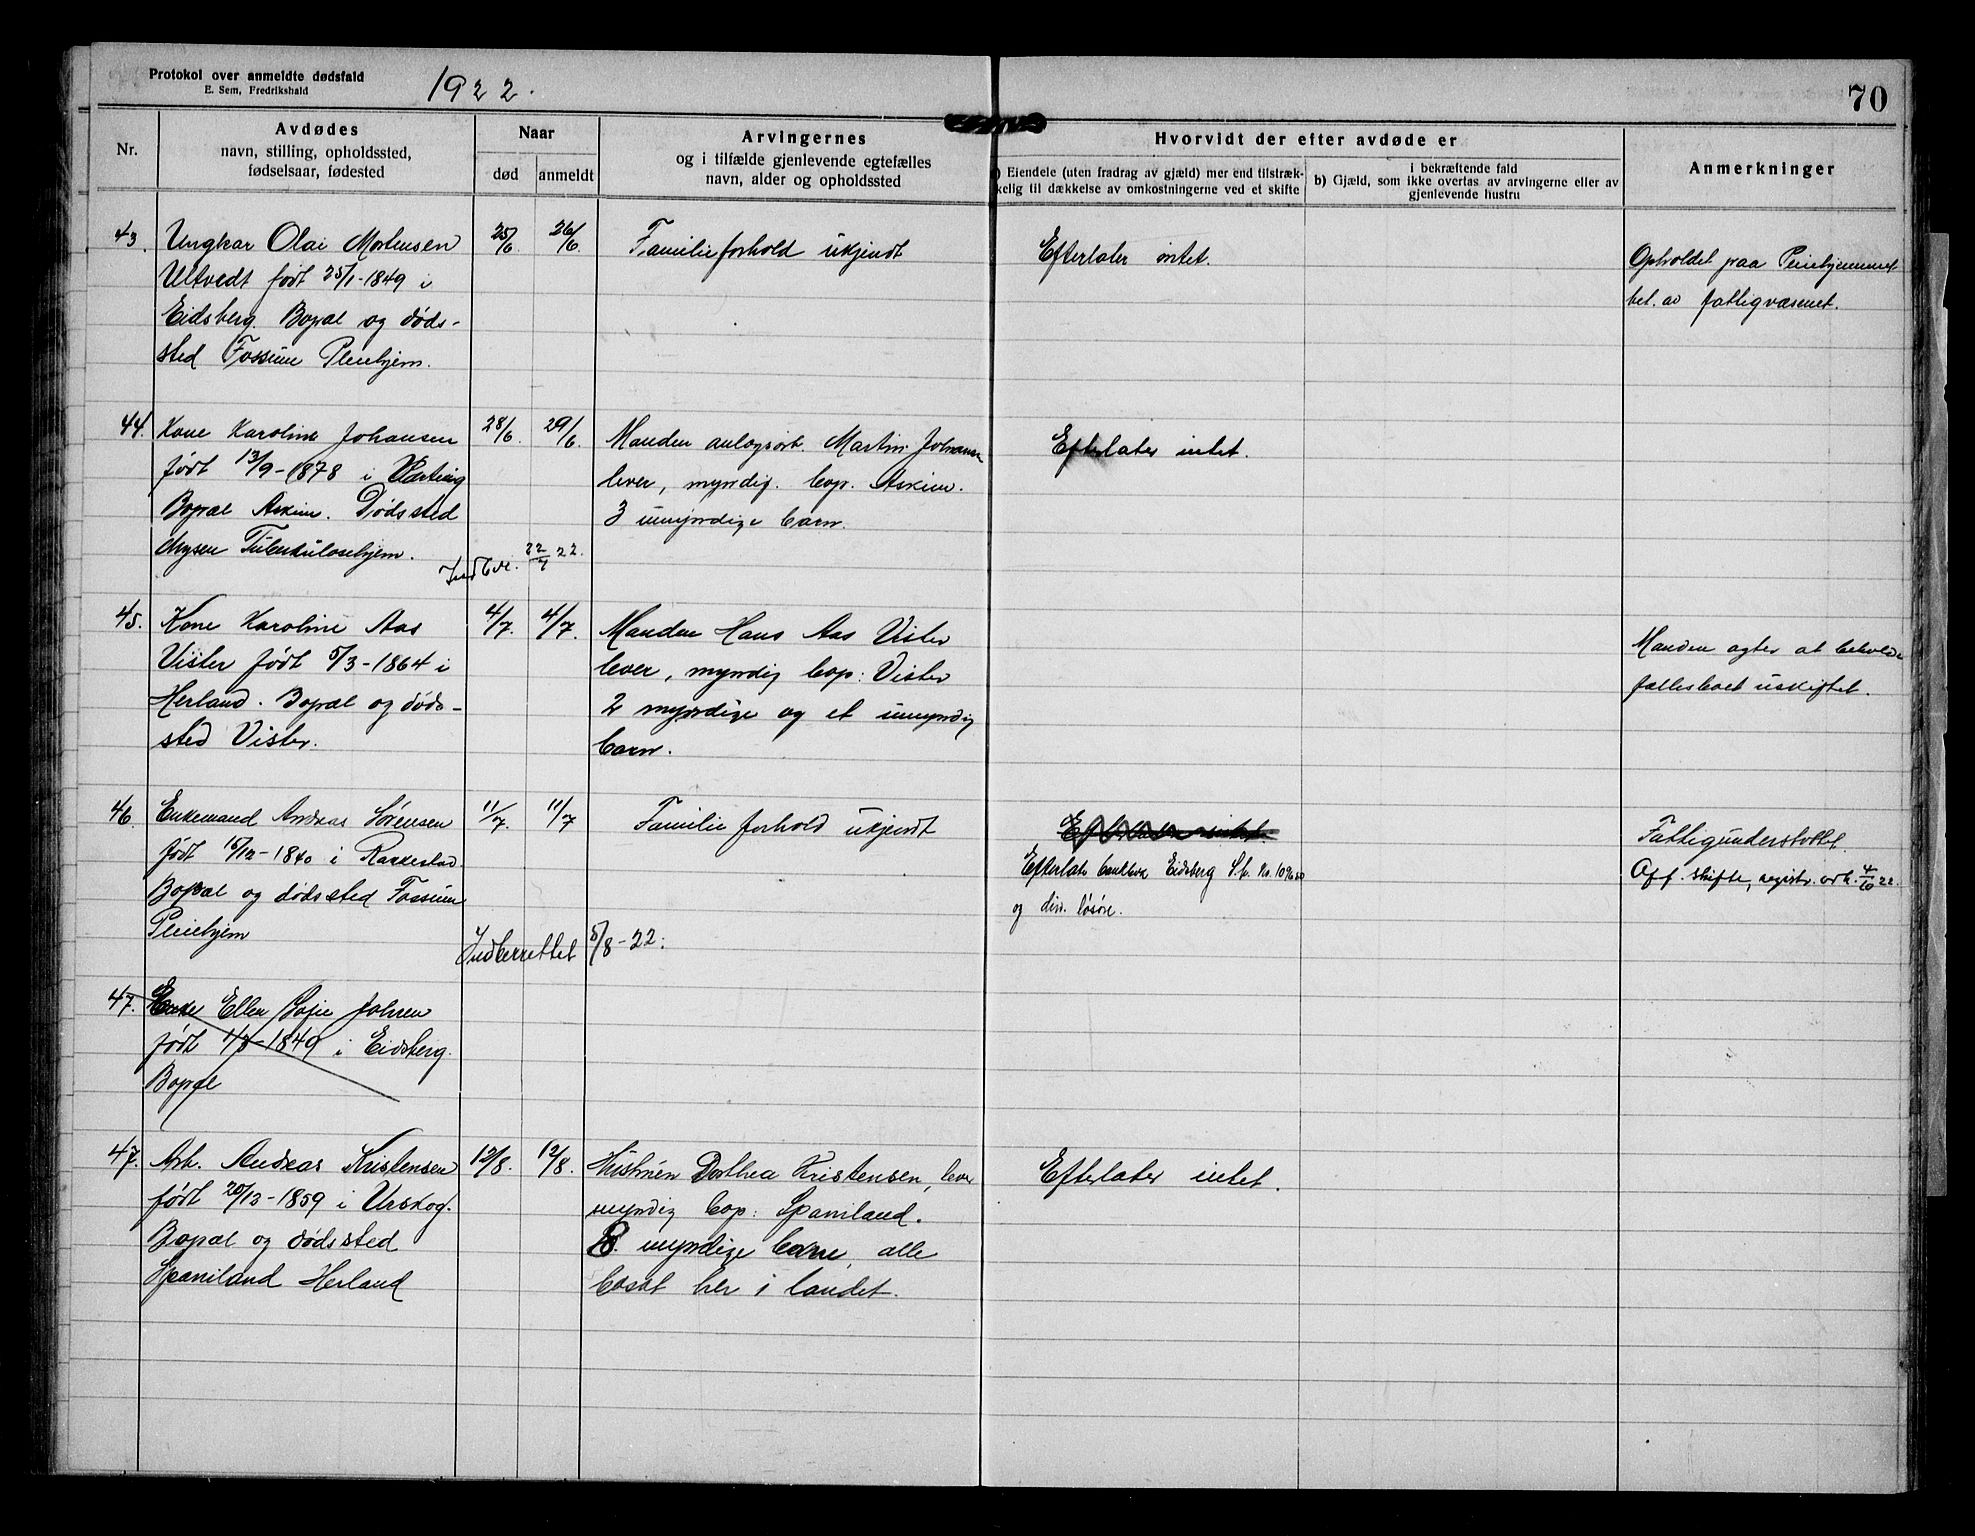 Protokol over anmeldte dødsfald
E. Sem, Fredrikshald
1922.
70
Nr.
Avdødes
navn, stilling, opholdssted,
fødselsaar, fødested
Naar
død
anmeldt
Arvingernes
og i tilfælde gjenlevende egtefælles
navn, alder og opholdssted
Hvorvidt der efter avdøde er
a) Eiendele (uten fradrag av gjæld) mer end tilstræk-
kelig til dækkelse av omkostningerne ved et skifte
i bekræftende fald
b) Gjæld, som ikke overtas av arvingerne eller av
gjenlevende hustru
Anmerkninger
43. Ungkar Olai Mortensen
Ultvedt født 25/1-1849 i
Eidsberg. Bopæl og døds-
sted Fossum Pleiehjem.
25/6. 26/6.
Familieforhold ukjendt
Efterlater intet.
Opholdet paa Pleiehjemmet
bet. av fattigvæsenet.
44. Kone Karoline Johansen
født 13/9-1878 i
Bopæl Askim. Dødssted
Mysen Tuberkulosehjem.
28/6. 29/6.
Manden anlægsarb. Martin Johansen
lever, myndig. bop. Askim.
3 umyndige barn.
Efterlater intet.
Indber. 22/7 22.
45. Kone Karoline Aas
Vister født 5/3-1864 i
Herland. Bopæl og døds-
sted Vister.
4/7. 4/7.
Manden Hans Aas Vister
lever, myndig bop: Vister
2 myndige og et umyndig
barn.
Manden agter at beholde
fællesboet uskiftet.
46. Enkemand Andreas Sørensen
født 15/12-1840 i Rakkestad.
Bopæl og dødssted Fossum
Pleiehjem
11/7. 11/7
Familieforhold ukjendt
Efterlater intet.
Efterlater bankbok Eidsberg Sb. No.
og div. løsøre.
Fattigunderstøttet.
Off. skifte, registr. avh. 4/10 22.
Indberettet 5/8-22.
47. Enke Ellen Sofie Johren
født 1/8-1849 i Eidsberg.
Bopæl
47. Arb. Andreas Kristensen
født 20/12-1859 i Urskog.
Bopæl og dødssted
Spaniland Herland
12/8. 12/8.
Hustruen Dorthea Kristensen, lever
myndig bop: Spaniland.
8. myndige barn, alle
bosat her i landet.
Efterlater intet.